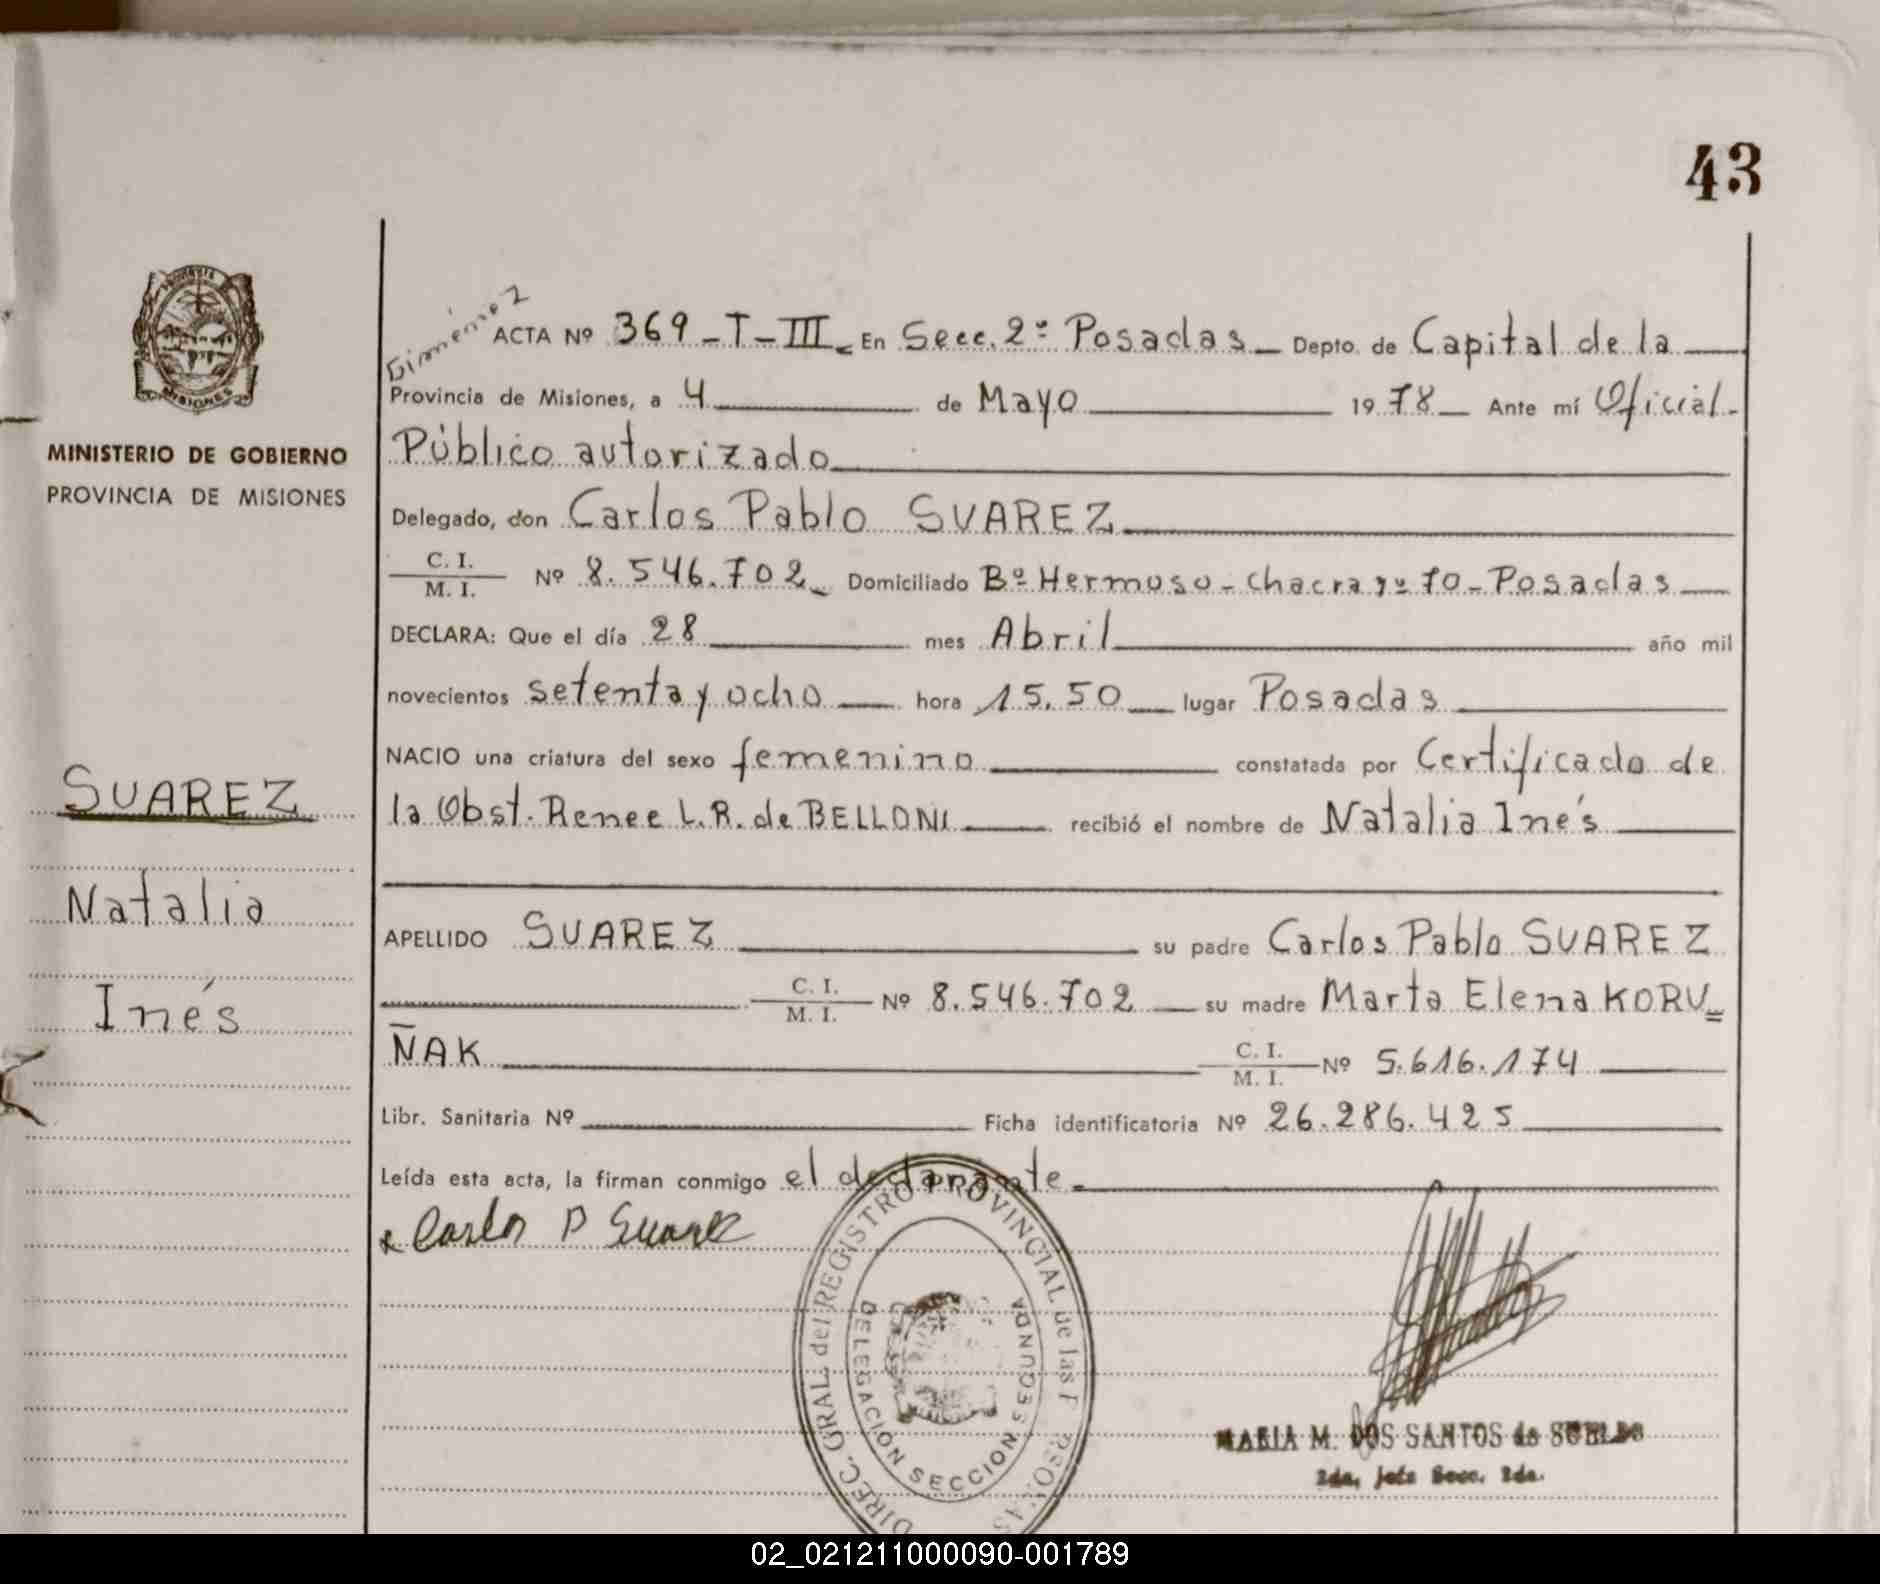 43
Gimenez
ACTA Nº 369-T-III. En Secc. 2º Posadas Depto. de Capital de la
Provincia de Misiones, a 4 de Mayo 1978 Ante mí Oficial
Público autorizado
MINISTERIO DE GOBIERNO
PROVINCIA DE MISIONES
Delegado, don Carlos Pablo SUAREZ
C. I.
M. I. Nº 8.546.702 Domiciliado Bº Hermoso - Chacra nº 70 - Posadas
DECLARA: Que el día 28 mes Abril año mil
novecientos setenta y ocho hora 15.50 lugar Posadas
NACIO una criatura del sexo femenino constatada por Certificado de
la Obst. Renee L.R. de BELLONI recibió el nombre de Natalia Inés
SUAREZ
Natalia
Inés
APELLIDO SUAREZ su padre Carlos Pablo SUAREZ
C. I.
M. I. Nº 8.546.702 su madre Marta Elena KORU=
ÑAK C. I.
M. I. Nº 5.616.174
Libr. Sanitaria Nº Ficha identificatoria Nº 26.286.425
Leída esta acta, la firman conmigo el declarante.
Carlos P Suarez
DIREC. GRAL. del REGISTRO PROVINCIAL de las
DELEGACION SECCION SEGUNDA
MARIA M. DOS SANTOS de SUELDO
2da. Jefe Secc. 2da.
02_021211000090-001789